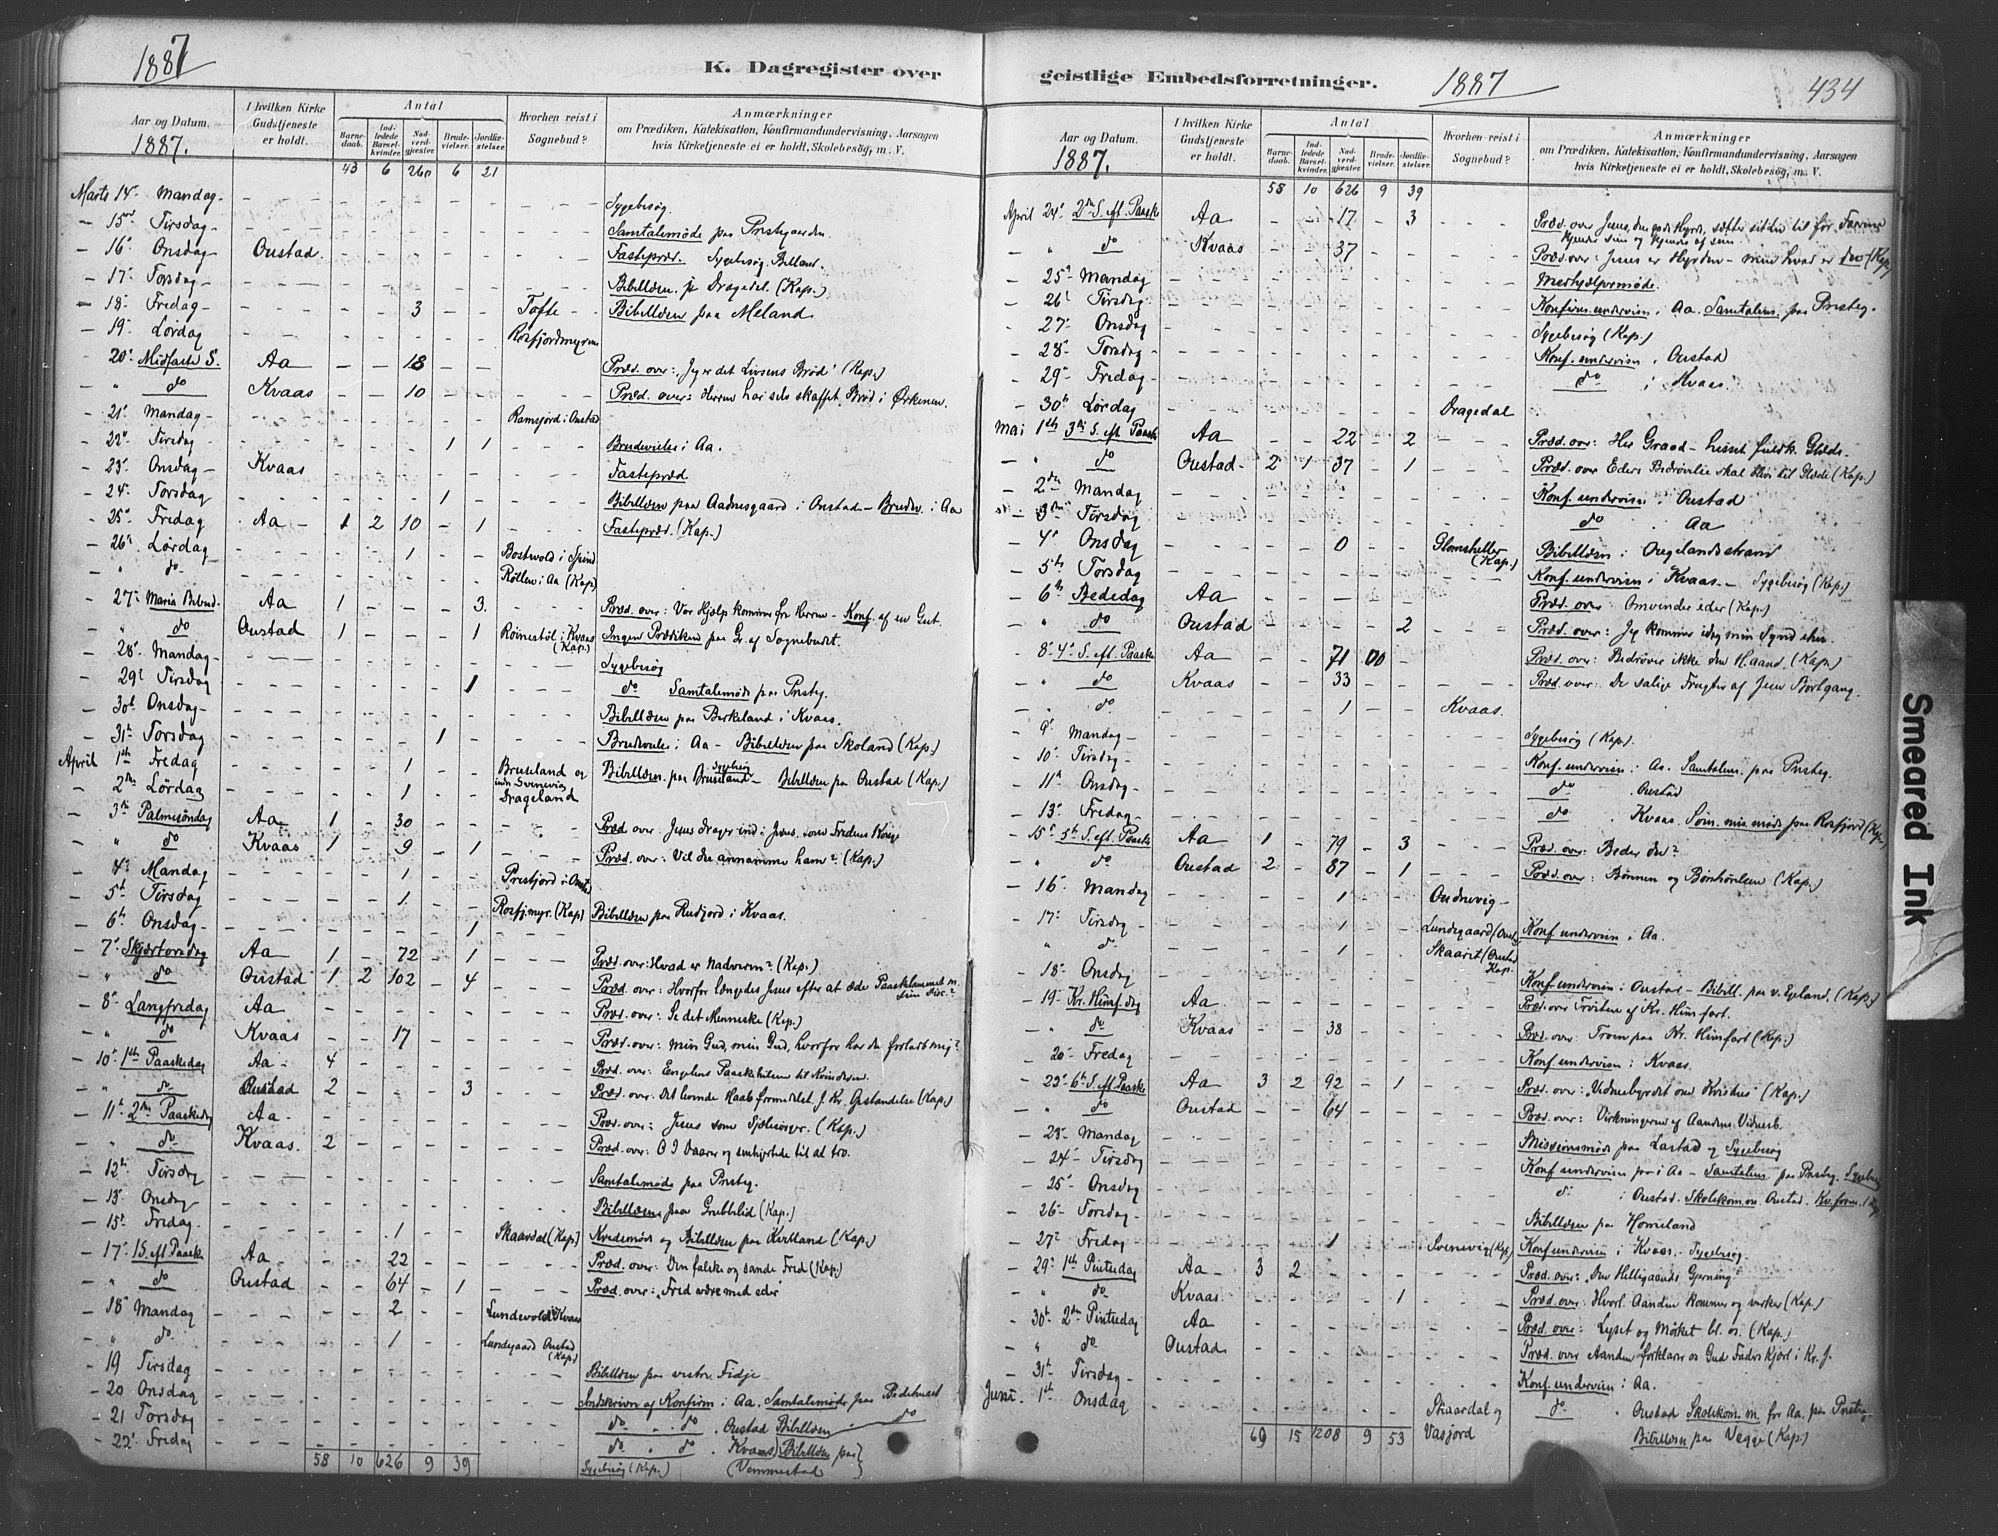 1887
K. Dagregister over
Aar og Datum.
1887.
I hvilken Kirke Gudstjeneste er holdt.
Antal
Barnedaab.
Indledede Barselkvinder.
Nadverdgjæster.
Brudevielser.
Jordfæstelser.
Hvorhen reist i Sognebud?
Anmærkninger
om Prædiken, Katekisation, Konfirmandundervisning, Aarsagen
hvis Kirketjeneste ei er holdt, Skolebesøg, m. V.
43 6 260 6 21
Marts 14 Mandag - Sygebesøg
15 Tirsdag - Samtalemøde paa Prstegaarden
16 Onsdag Oustad Fastepræd. Sygebesøg
17 Torsdag - Bibellæsn. Dragedal. (Kap.)
18 Fredag 3 Tofte Bibellæsn paa Meland
19 Lørdag Rosfjordmyren
20 Midfaste S. Aa 18 Præd. over: Jeg er det Livsens Brød (Kap.)
" do Kvaas 10 Præd. over: Herren har selv skaffet Brød i Ørkenen.
21 Mandag Ramsfjord i Oustad
22 Tirsdag 1 1 Brudevielse i Aa.
23 Onsdag Kvaas Fastepræd
24 Torsdag 1 Bibellæsn paa Aadnesgaard i Oustad - Brudev. i Aa
25 Fredag Aa 1 2 10 - 1 Fastepræd. (Kap.)
26 Lørdag 1 Bostvold i Spind
" do Røtlen i Aa (Kap)
27 Maria Bebud. Aa 1 3. Præd. over: Vor Hjælp kommer fra Herren - Konf. af en Gut.
" do Oustad 1 1 Rømestøl i Kvaas (Kap.) Ingen Prædiken paa Gr. af Sognebudet.
28 Mandag Sygebesøg
29 Tirsdag 1 do Samtalemøde paa Prsteg.
30 Onsdag Bibellæsn paa Birkeland i Kvaas.
31 Torsdag 1 Brudevielse i Aa - Bibellæsn paa Skoland (Kap.)
April 1 Fredag 1 Bruseland og Bibellæsn. paa Bruseland - Bibellæsn paa Oustad (Kap.)
2 Lørdag 1 Drageland
3 Palmesøndag Aa 1 - 30 Præd over: Jesus drager ind i Jerus. som Fredens Konge
" do Kvaas 1 - 9 - 1 Præd. over: Vil du annamme ham? (Kap.)
4 Mandag 1 Prestfjord i Oustad
5 Tirsdag 1 Rosfj.myr. (Kap) Bibellæsn paa Rudjord i Kvaas.
6 Onsdag 1
7 Skjærtorsdag Aa 1 - 72 - 1 Præd. over: Hvad er Nadveren? (Kap.)
" do Oustad 1 2 102 - 4 Præd. over: Hvorfor længedes Jesus efter at æde Paaskelammet m. sine Disc.?
8 Langfredag Aa Præd. over: Se det Menneske (Kap.)
" do Kvaas 17 Præd. over: Min Gud, min Gud, hvorfor har du forladt mig?
10 1 Paaskedag Aa 4 Præd. over: Englens Paaskehilsen til Kvinderne.
" do Oustad 2 3 Præd. over: Det levende Haab formedelst J. Kr. Opstandelse (Kap.)
11 2 Paaskedag Aa Præd. over: Jesus som Sjælesørger. (Kap.)
" do Kvaas. 2 Præd. over: O I Daarer og senhjertede til at tro.
12 Tirsdag Samtalemøde paa Prsteg.
13 Onsdag Bibellæsn paa Grubbelid (Kap.)
15 Fredag 1 Skaardal (Kap) Kvedemøde og Bibellæsn paa Kirkland (Kap.)
17 1 S. eft. Paaske Aa 22 Præd. over: Den falske og sande Fred (Kap.)
" do Oustad 64 - 1 Præd. over: "Fred være med eder"
18 Mandag 2 Lundevold i Kvaas
" do 1 Lundegaard Oustad (Kap.)
19 Tirsdag Bibellæsn paa vestre Fidje
20 Onsdag Indskrivn af Konfirm i Aa. Samtalemøde paa Bedehuset
21 Torsdag do " do . Oustad Bibellæsn do
22 Fredag do " do . Kvaas Bibellæsn paa
58 10 626 9 39 Sygebesøg (Kap.) (Vemmestad

geistlige Embedsforretninger. 1887 434
Aar og Datum.
1887.
I hvilken Kirke Gudstjeneste er holdt.
Antal
Barnedaab.
Indledede Barselkvinder.
Nadverdgjæster.
Brudevielser.
Jordfæstelser.
Hvorhen reist i Sognebud?
Anmærkninger
om Prædiken, Katekisation, Konfirmandundervisning, Aarsagen
hvis Kirketjeneste ei er holdt, Skolebesøg, m. V.
58 10 626 9 39
April 24 2 S. eft. Paaske Aa 17 - 3 Præd. over Jesus, den gode Hyrde, sætter sit Liv til for Faarene
kjender sine og kjendes af sine
" do Kvaas 37 Præd. over: Jesus er Hyrden - men hvad er du? (Kap.)
25 Mandag
26 Tirsdag Konfirm.undervisn. i Aa. Samtalem. paa Prsteg.
27 Onsdag Sygebesøg (Kap.)
28 Torsdag Konf.undervisn. i Oustad
29 Fredag do i Kvaas.
30 Lørdag Dragedal
Mai 1 3 S. eft. Paaske Aa 22 - 2 Præd. over: Her Graad - hisset fuldk. Glæde.
" do Oustad 2 1 37 - 1 Præd. over Eders Bedrøvelse skal blive til Glæde (Kap.)
2 Mandag Konf.undervisn. i Oustad
3 Tirsdag do . Aa
4 Onsdag 0 Glomsheller (Kap.) Bibellæsn i Øugelandsstrand
5 Torsdag Konf.undervisn i Kvaas - Sygebesøg (Kap.)
6 Bededag Aa Præd. over: Omvender eder (Kap.)
" do Oustad 2 Præd. over: Jeg kommer idag min Synd ihu.
8 4 S. eft. Paaske Aa 71 00 Præd. over: Bedrøver ikke den H.aand. (Kap.)
" do Kvaas 33 Præd. over: De salige Frugter af Jesu Bortgang.
" do. 1 Kvaas.
9 Mandag Sygebesøg (Kap.)
10 Tirsdag Konf.undervisn. i Aa. Samtalem. paa Prsteg.
11 Onsdag do . Oustad
13 Fredag do . Kvaas. paa Rosfjord (Kap.)
15 5 S. eft. Paaske Aa 1 - 79 - 3 Præd. over: Beder du?
" do Oustad 2 - 87 - 1 Præd. over: Bønnen og Bønhørelsen (Kap.)
16 Mandag 1 Oudnevig
17 Tirsdag 1 Lundegaard (Oust.) Konf.undervisn. i Aa.
" do 1 Skaarit (Oustad Kap.
18 Onsdag Konf.undervisn i Oustad - Bibell. paa v. Egeland. (Kap.)
19 Kr. Himf.dag Aa Præd. over Trøsten af Kr. Himfart.
" do Kvaas 38 Præd. over: Troen paa Kr. Himfart (Kap.)
20 Fredag Konf.undervisn i Kvaas.
22 6 S. eft. Paaske Aa 3 2 92 - 1 Præd. over: "Vidnesbyrdet om Kristus" (Kap.)
" do Oustad 64 Præd. over: Virkningerne af Aandens Vidnesb.
23 Mandag Missionsmøde paa Lastad og Sygebesøg
24 Tirsdag Konf.undervisn i Aa - Samtalem. paa Prsteg. Sygebesøg
25 Onsdag do i Oustad. Skolekom.m. Oustad.
26 Torsdag Bibellæsn paa Homeland
27 Fredag 1 Svenevig (Kap.) Konf.undervisn i Kvaas. Sygebesøg.
29 1 Pintsedag Aa 3 2 Præd. over: Den Helligaands Gjerning
" do Kvaas. 1 Præd. over: Hvorl. Aanden kommer og virker (Kap.)
30 2 Pintsedag Aa Præd. over: Lyset og Mørket bl. os. (Kap.)
" do Oustad Præd. over Aanden forklarer os Gud Faders Kjærl. i Kr. J.
31 Tirsdag Konf.undervisn i Aa.
Juni 1 Onsdag Skaardal og do . Oustad Skolekom.m. for Aa. paa Prsteg.
69 15 1208 9 53 Vasjord Bibellæsn paa Vegge (Kap.)
Smeared Ink